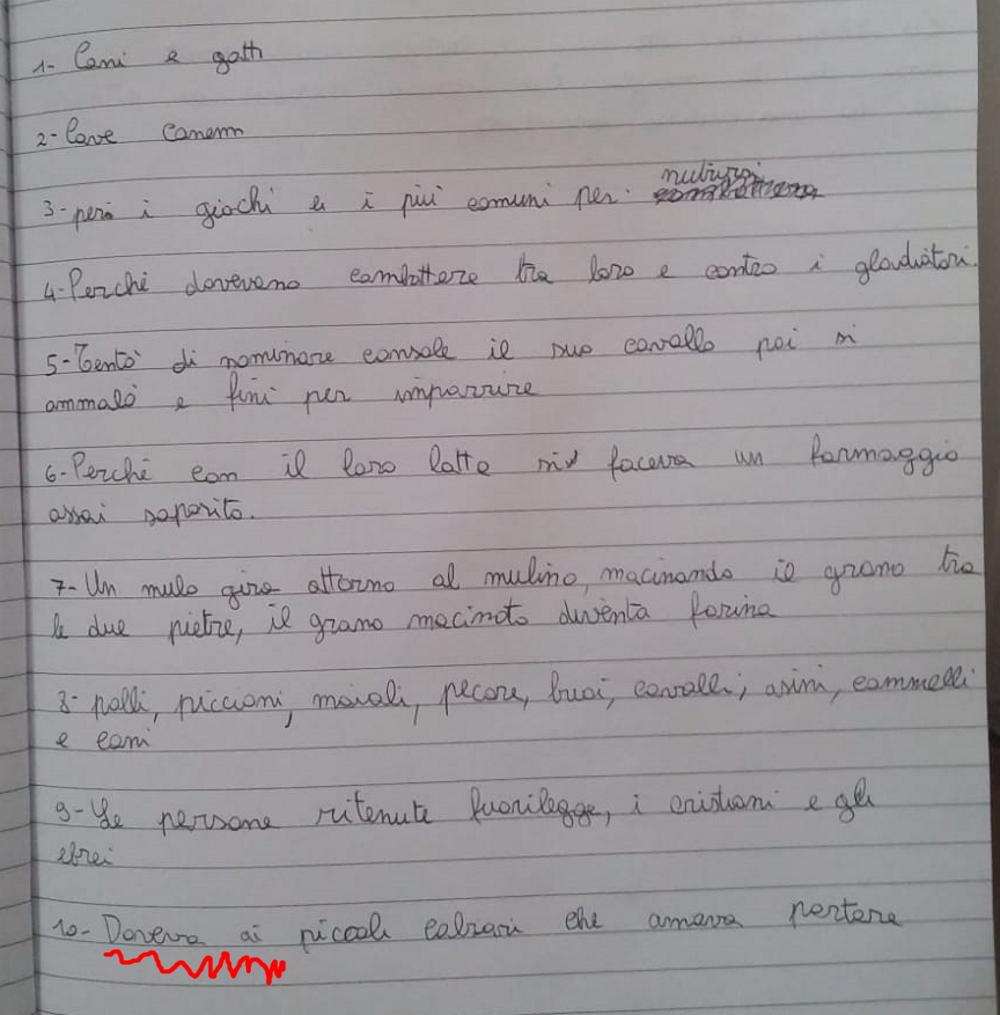 1- Cani e gatti
2- Cave canem
3- però i giochi e i più comuni per nutrirsi
4- Perché dovevano combattere tra loro e contro i glaudiatori.
5- Tentò di nominare console il suo cavallo poi si
ammalò e finì per impazzire
6- Perché con il loro latte si faceva un formaggio
assai saporito.
7- Un mulo gira attorno al mulino, macinando il grano tra
le due pietre, il grano macinato diventa farina
8- polli, piccioni, maiali, pecore, buoi, cavalli, asini, cammelli
e cani
9- Le persone ritenute fuorilegge, i cristiani e gli
ebrei
10- Doveva ai piccoli calzari che amava portare